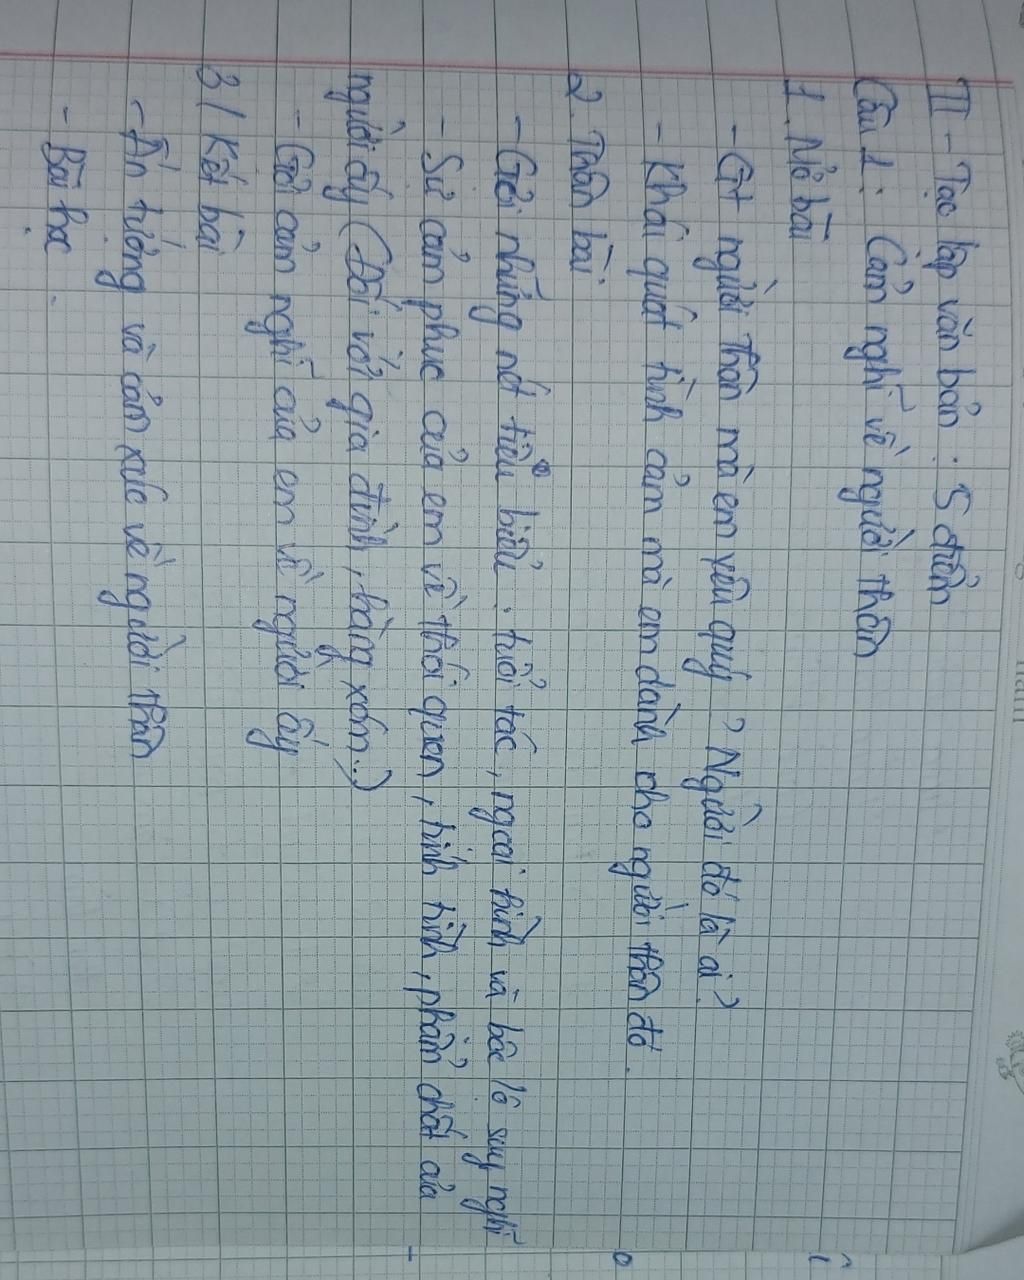 II - Tạo lập văn bản : 5 điểm
Câu 1 : Cảm nghĩ về người thân
1. Mở bài
- Gt người thân mà em yêu quý ? Người đó là ai ?
- Khái quát tình cảm mà em dành cho người thân đó.
2. Thân bài.
- Gợi những nét tiêu biểu : tuổi tác, ngoại hình và bộc lộ suy nghĩ
- Sự cảm phục của em về thói quen, tính tình, phẩm chất của
người ấy (Đối với gia đình, hàng xóm...)
- Gợi cảm nghĩ của em về người ấy
3/ Kết bài
- Ấn tượng và cảm xúc về người thân
- Bài học.